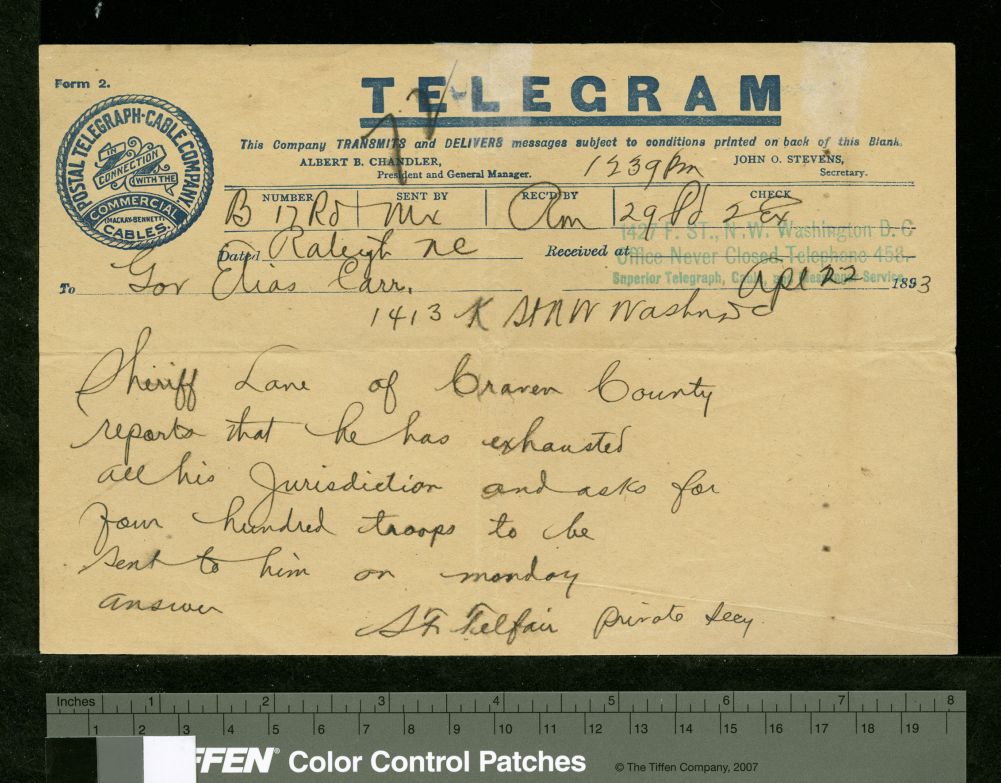 Form 2.
TELEGRAM
POSTAL TELEGRAPH-CABLE COMPANY
IN CONNECTION WITH THE
COMMERCIAL
(MACKAY-BENNETT)
CABLES.
This Company TRANSMITS and DELIVERS messages subject to conditions printed on back of this Blank.
ALBERT B. CHANDLER,
President and General Manager.
1239 Pm
JOHN O. STEVENS,
Secretary.
NUMBER SENT BY REC'D BY CHECK
B 17 Rd Mx Am 29 Pd 2 Ex
1427 F. ST., N.W. Washington D.C
Office Never Closed. Telephone 458.
Superior Telegraph, Cable, and Messenger Service.
Dated Raleigh NC Received at
To Gov Elias Carr, Apl 22 1893
1413 K St NW Washn DC
Sheriff Lane of Craven County
reports that he has exhausted
all his Jurisdiction and asks for
four hundred troops to be
sent to him on monday
answer
S F Telfair private secy
Inches 1 2 3 4 5 6 7 8
1 2 3 4 5 6 7 8 9 10 11 12 13 14 15 16 17 18 19
FFEN® Color Control Patches © The Tiffen Company, 2007